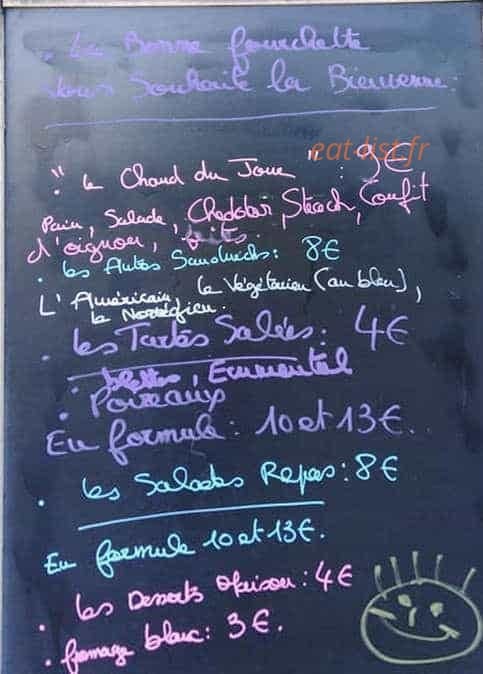 . La Bonne fourchette
Vous Souhaite la Bienvenue.
eat-list.fr
" Le Chaud du Jour " : 9€
Pain, Salade, Cheddar, Steack, Confit
d'oignon, frites.
. Les Autres Sandwichs: 8€
L'Américain le Végétarien (au bleu),
le Norvégien.
. Les Tartes Salées: 4€
. Blettes, Emmental
. Poireaux
En formule: 10 et 13€.
. Les Salades Repas: 8€
En formule 10 et 13€.
. Les Desserts Maison: 4€
. fromage blanc: 3€.